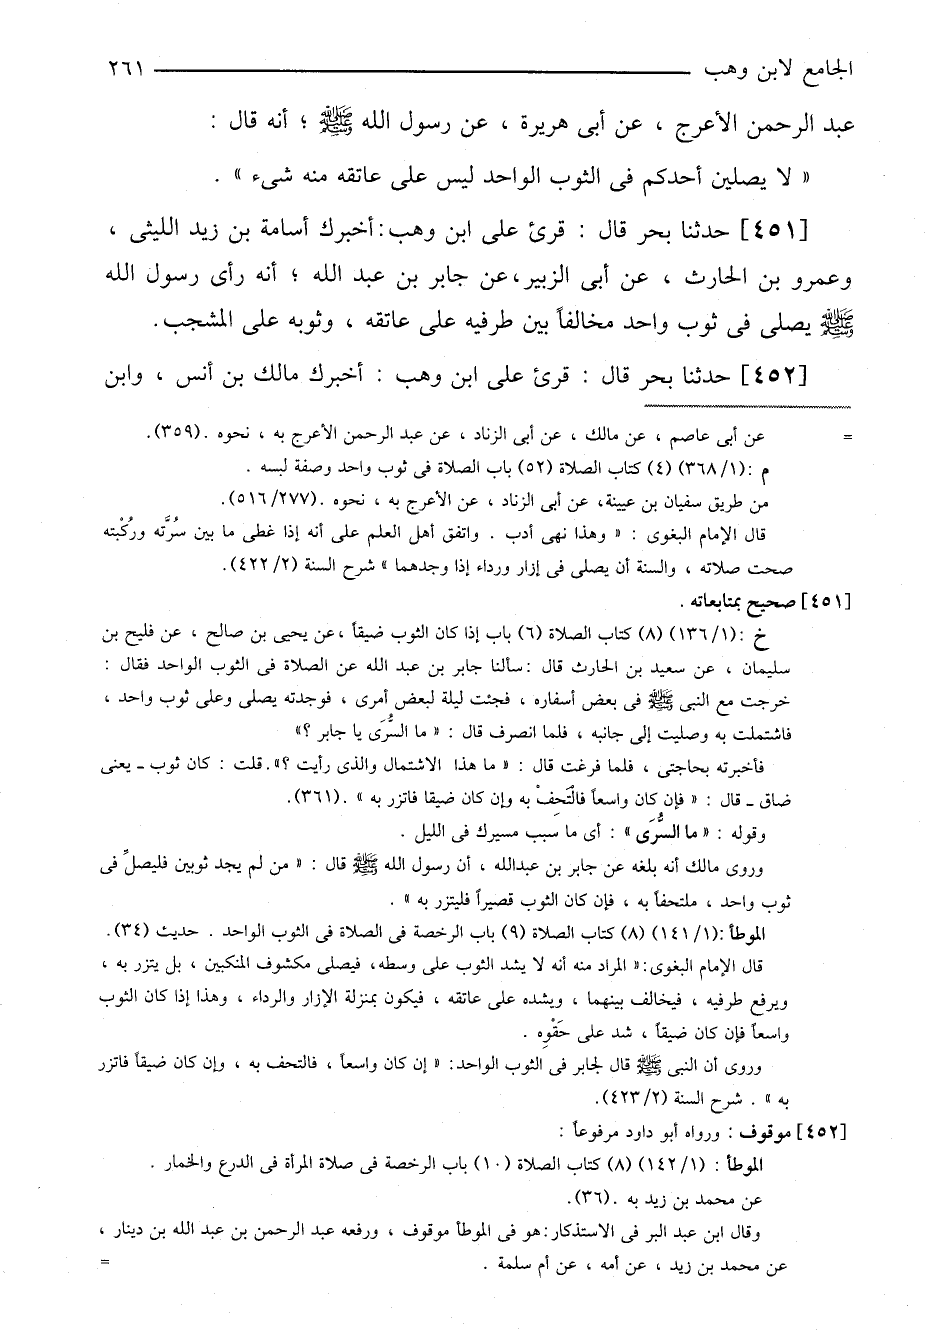 الجامع لابن وهب ــــــــــــــــــــ ٢٦١
عبد الرحمن الأعرج ، عن أبى هريرة ، عن رسول الله ﷺ ؛ أنه قال :
« لا يصلين أحدكم فى الثوب الواحد ليس على عاتقه منه شىء » .
[٤٥١] حدثنا بحر قال : قرئ على ابن وهب:أخبرك أسامة بن زيد الليثى ،
وعمرو بن الحارث ، عن أبى الزبير،عن جابر بن عبد الله ؛ أنه رأى رسول الله
ﷺ يصلى فى ثوب واحد مخالفاً بين طرفيه على عاتقه ، وثوبه على المشجب.
[٤٥٢] حدثنا بحر قال : قرئ على ابن وهب : أخبرك مالك بن أنس ، وابن
= عن أبى عاصم ، عن مالك ، عن أبى الزناد ، عن عبد الرحمن الأعرج به ، نحوه .(٣٥٩).
م :(٣٦٨/١) (٤) كتاب الصلاة (٥٢) باب الصلاة فى ثوب واحد وصفة لبسه .
من طريق سفيان بن عيينة، عن أبى الزناد ، عن الأعرج به ، نحوه .(٥١٦/٢٧٧).
قال الإمام البغوى : « وهذا نهى أدب . واتفق أهل العلم على أنه إذا غطى ما بين سُرَّته ورُكْبته
صحت صلاته ، والسنة أن يصلى فى إزار ورداء إذا وجدهما » شرح السنة (٤٢٢/٢).
[٤٥١] صحيح بمتابعاته .
خ :(١٣٦/١) (٨) كتاب الصلاة (٦) باب إذا كان الثوب ضيقاً ،عن يحيى بن صالح ، عن فليح بن
سليمان ، عن سعيد بن الحارث قال :سألنا جابر بن عبد الله عن الصلاة فى الثوب الواحد فقال :
خرجت مع النبى ﷺ فى بعض أسفاره ، فجئت ليلة لبعض أمرى ، فوجدته يصلى وعلى ثوب واحد ،
فاشتملت به وصليت إلى جانبه ، فلما انصرف قال : « ما السُّرَى يا جابر ؟»
فأخبرته بحاجتى ، فلما فرغت قال : « ما هذا الاشتمال والذى رأيت ؟».قلت : كان ثوب ـ يعنى
ضاق ـ قال : « فإن كان واسعاً فالْتَحِفْ به وإن كان ضيقا فاتزر به » .(٣٦١).
وقوله : « ما السُّرَى » : أى ما سبب مسيرك فى الليل .
وروى مالك أنه بلغه عن جابر بن عبدالله ، أن رسول الله ﷺ قال : « من لم يجد ثوبين فليصلِّ فى
ثوب واحد ، ملتحفاً به ، فإن كان الثوب قصيراً فليتزر به » .
الموطأ :(١٤١/١) (٨) كتاب الصلاة (٩) باب الرخصة فى الصلاة فى الثوب الواحد . حديث (٣٤).
قال الإمام البغوى:« المراد منه أنه لا يشد الثوب على وسطه، فيصلى مكشوف المنكبين ، بل يتزر به ،
ويرفع طرفيه ، فيخالف بينهما ، ويشده على عاتقه ، فيكون بمنزلة الإزار والرداء ، وهذا إذا كان الثوب
واسعاً فإن كان ضيقاً ، شد على حَقْوِه .
وروى أن النبى ﷺ قال لجابر فى الثوب الواحد: « إن كان واسعاً ، فالتحف به ، وإن كان ضيقاً فاتزر
به » . شرح السنة (٤٢٣/٢).
[٤٥٢] موقوف : ورواه أبو داود مرفوعاً :
الموطأ : (١٤٢/١) (٨) كتاب الصلاة (١٠) باب الرخصة فى صلاة المرأة فى الدرع والخمار .
عن محمد بن زيد به .(٣٦).
وقال ابن عبد البر فى الاستذكار:هو فى الموطأ موقوف ، ورفعه عبد الرحمن بن عبد الله بن دينار ،
عن محمد بن زيد ، عن أمه ، عن أم سلمة . =